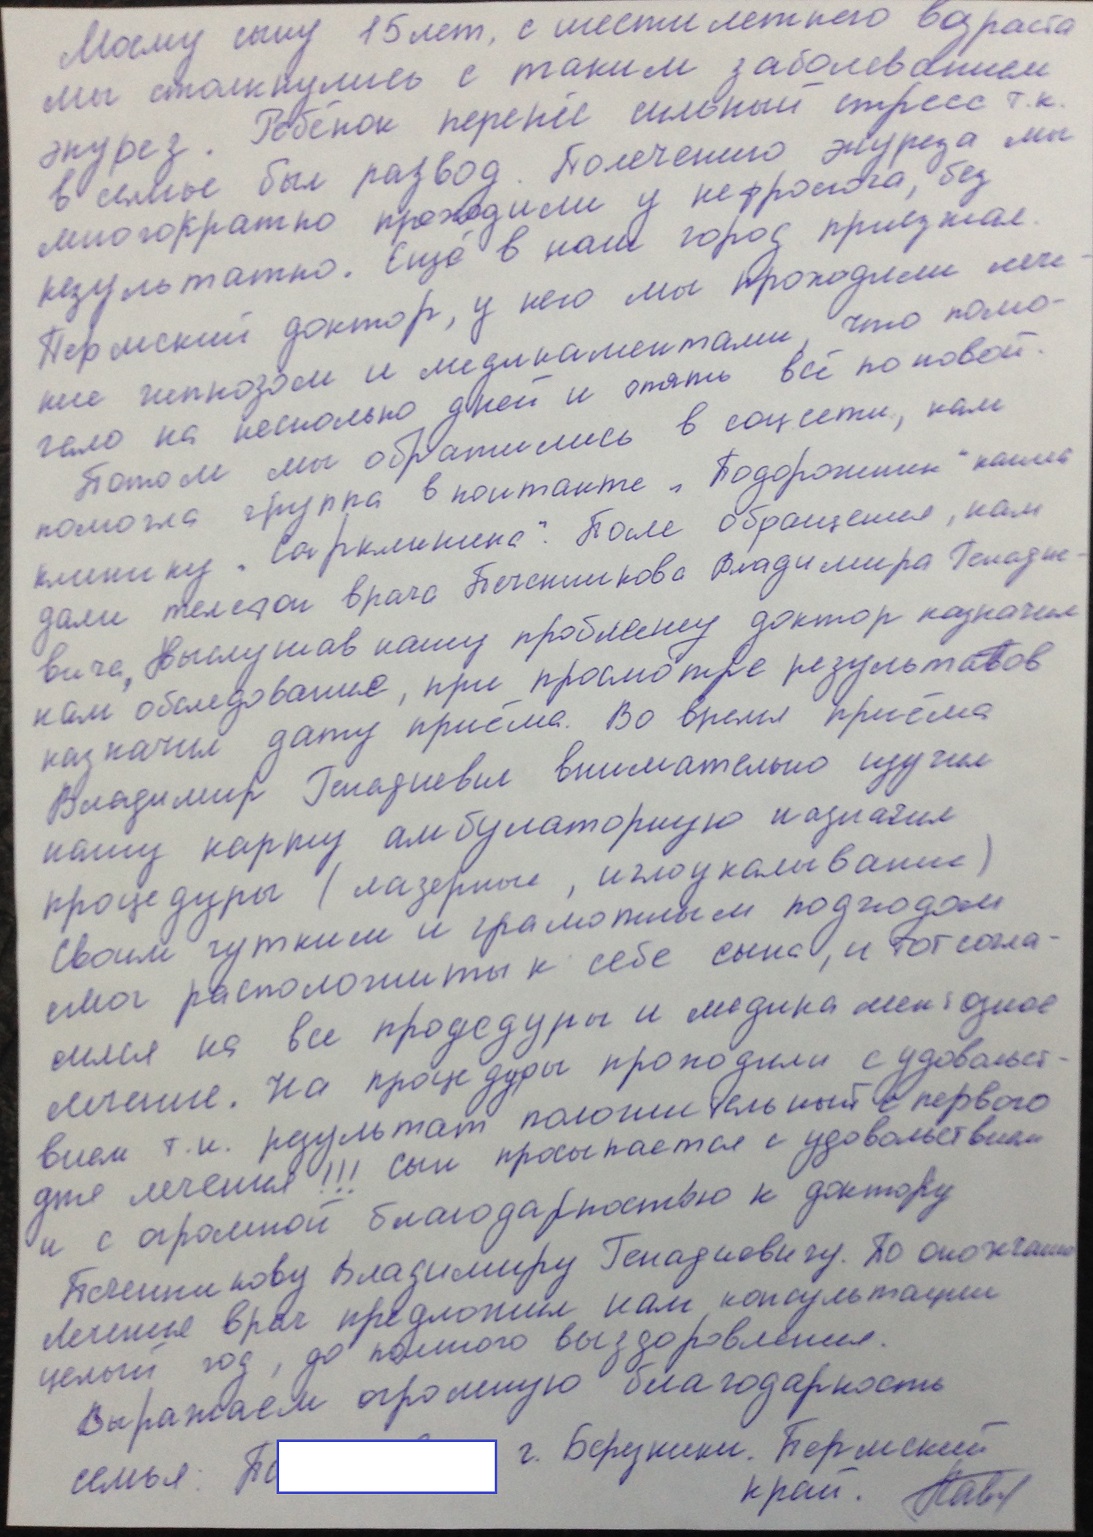 Моему сыну 15 лет, с шестилетнего возраста
мы столкнулись с таким заболеванием
энурез. Ребёнок перенёс сильный стресс т.к.
в семье был развод. Полечению энуреза мы
многократно проходили у нефролога, без
результатно. Ещё в наш город приезжал
Пермский доктор, у него мы проходили лече-
ние гипнозом и медикаментами, что помо-
гало на несколько дней и опять всё по новой.
Потом мы обратились в соцсети, нам
помогла группа вконтакте "Подорожник" нашла
клинику "Сарклиника". После обращения, нам
дали телефон врача Печенникова Владимира Генадие-
вича, Выслушав нашу проблему доктор назначил
нам обследование, при просмотре результатов
назначил дату приёма. Во время приёма
Владимир Генадиевич внимательно изучил
нашу карту амбулаторную назначил
процедуры (лазерные, иглоукалывание)
Своим чутким и грамотным подходом
смог расположить к себе сына, и тот согла-
сился на все процедуры и медикаментозное
лечение. На процедуры проходили с удовольст-
вием т.к. результат положительный с первого
дня лечения!!! Сын просыпается с удовольствием
и с огромной благодарностью к доктору
Печенникову Владимиру Генадиевичу. По окончанию
лечения врач предложил нам консультации
целый год, до полного выздоровления.
Выражаем огромную благодарность
семья: По г. Березники. Пермский
край.